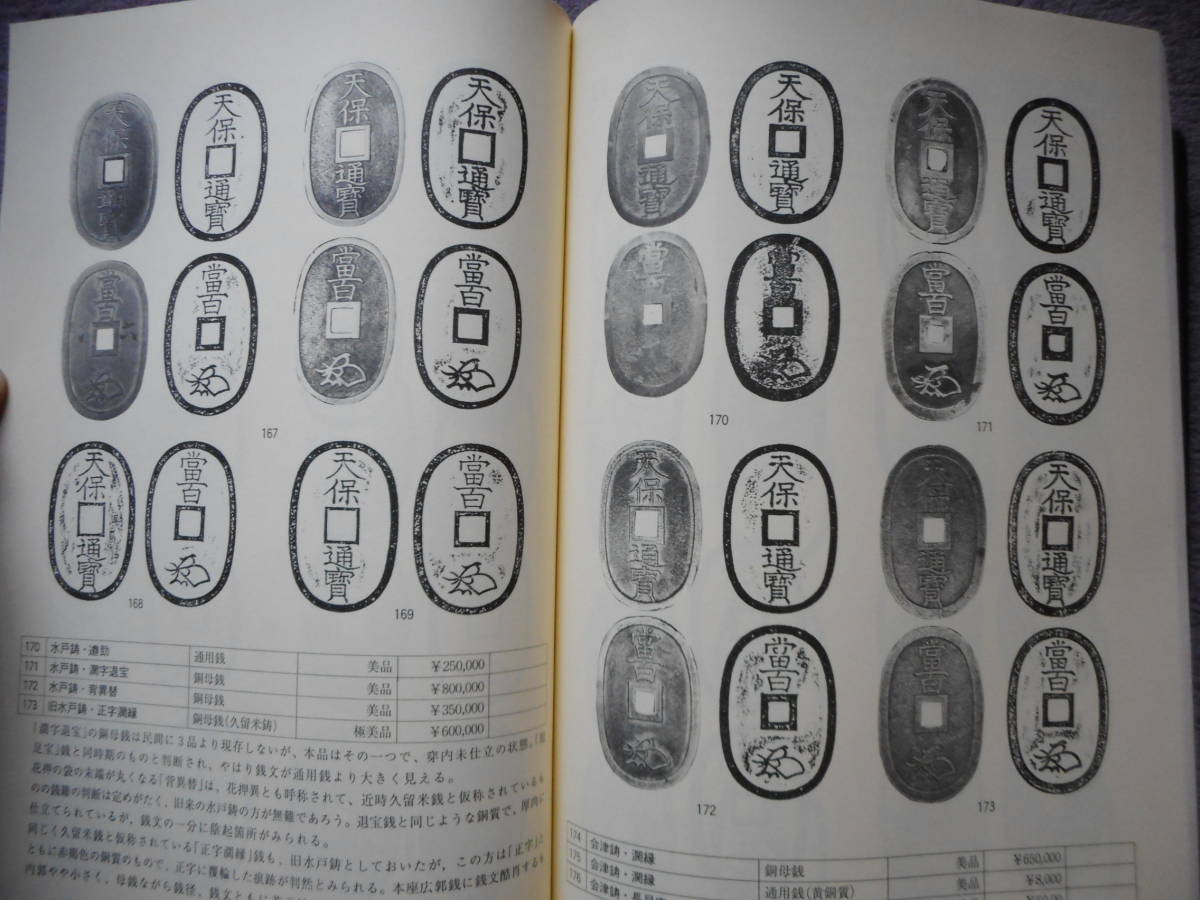 天保
通寶
當百
167
168
169
170 水戸鋳・遒勁 通用銭 美品 ¥250,000
171 水戸鋳・濶字退宝 銅母銭 美品 ¥800,000
172 水戸鋳・背異替 銅母銭 美品 ¥350,000
173 旧水戸鋳・正字濶縁 銅母銭(久留米鋳) 極美品 ¥600,000
「濶字退宝」の銅母銭は民間に3品より現存しないが、本品はその一つで、穿内未仕立の状態。
足宝」銭と同時期のものと判断され、やはり銭文が通用銭より大きく見える。
花押の袋の末端が丸くなる「背異替」は、花押異とも呼称されて、近時久留米銭と仮称されている
のの銭籍の判断は定めがたく、旧来の水戸鋳の方が無難であろう。退宝銭と同じような銅質で、厚肉に
仕立てられているが、銭文の一分に陰起箇所がみられる。
同じく久留米銭と仮称されている「正字濶縁」銭も、旧水戸鋳としておいたが、この方は「正字」
ともに赤褐色の銅質のもので、正字に覆輪した痕跡が判然とみられる。本座広郭銭に銭文酷肖する
内郭やや小さく、母銭ながら銭径、銭文ともに
170
171
172
173
174 会津鋳・濶縁 銅母銭 美品 ¥650,000
175 会津鋳・濶縁 通用銭(黄銅質) 美品 ¥8,000
176 会津鋳・長貝宝